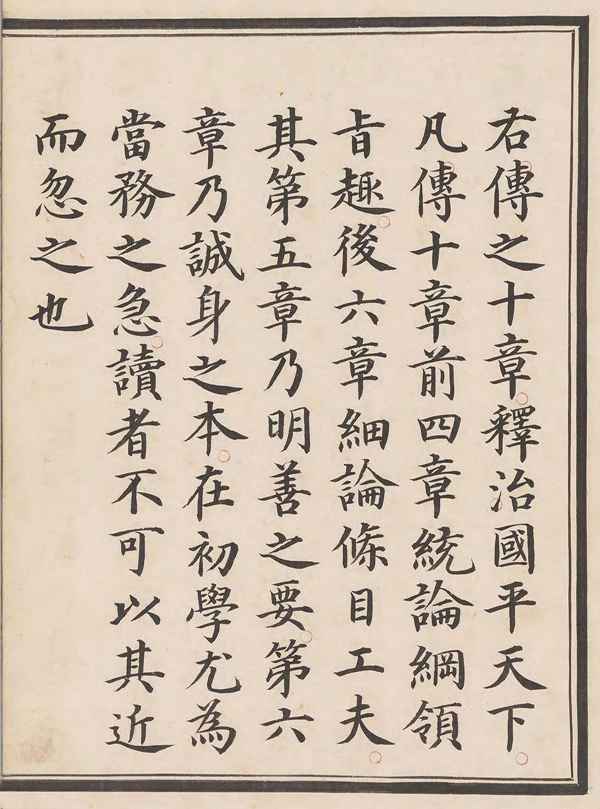 右傳之十章釋治國平天下
凡傳十章前四章統論綱領
㫖趣後六章細論條目工夫
其第五章乃明善之要第六
章乃誠身之本在初學尤為
當務之急讀者不可以其近
而忽之也